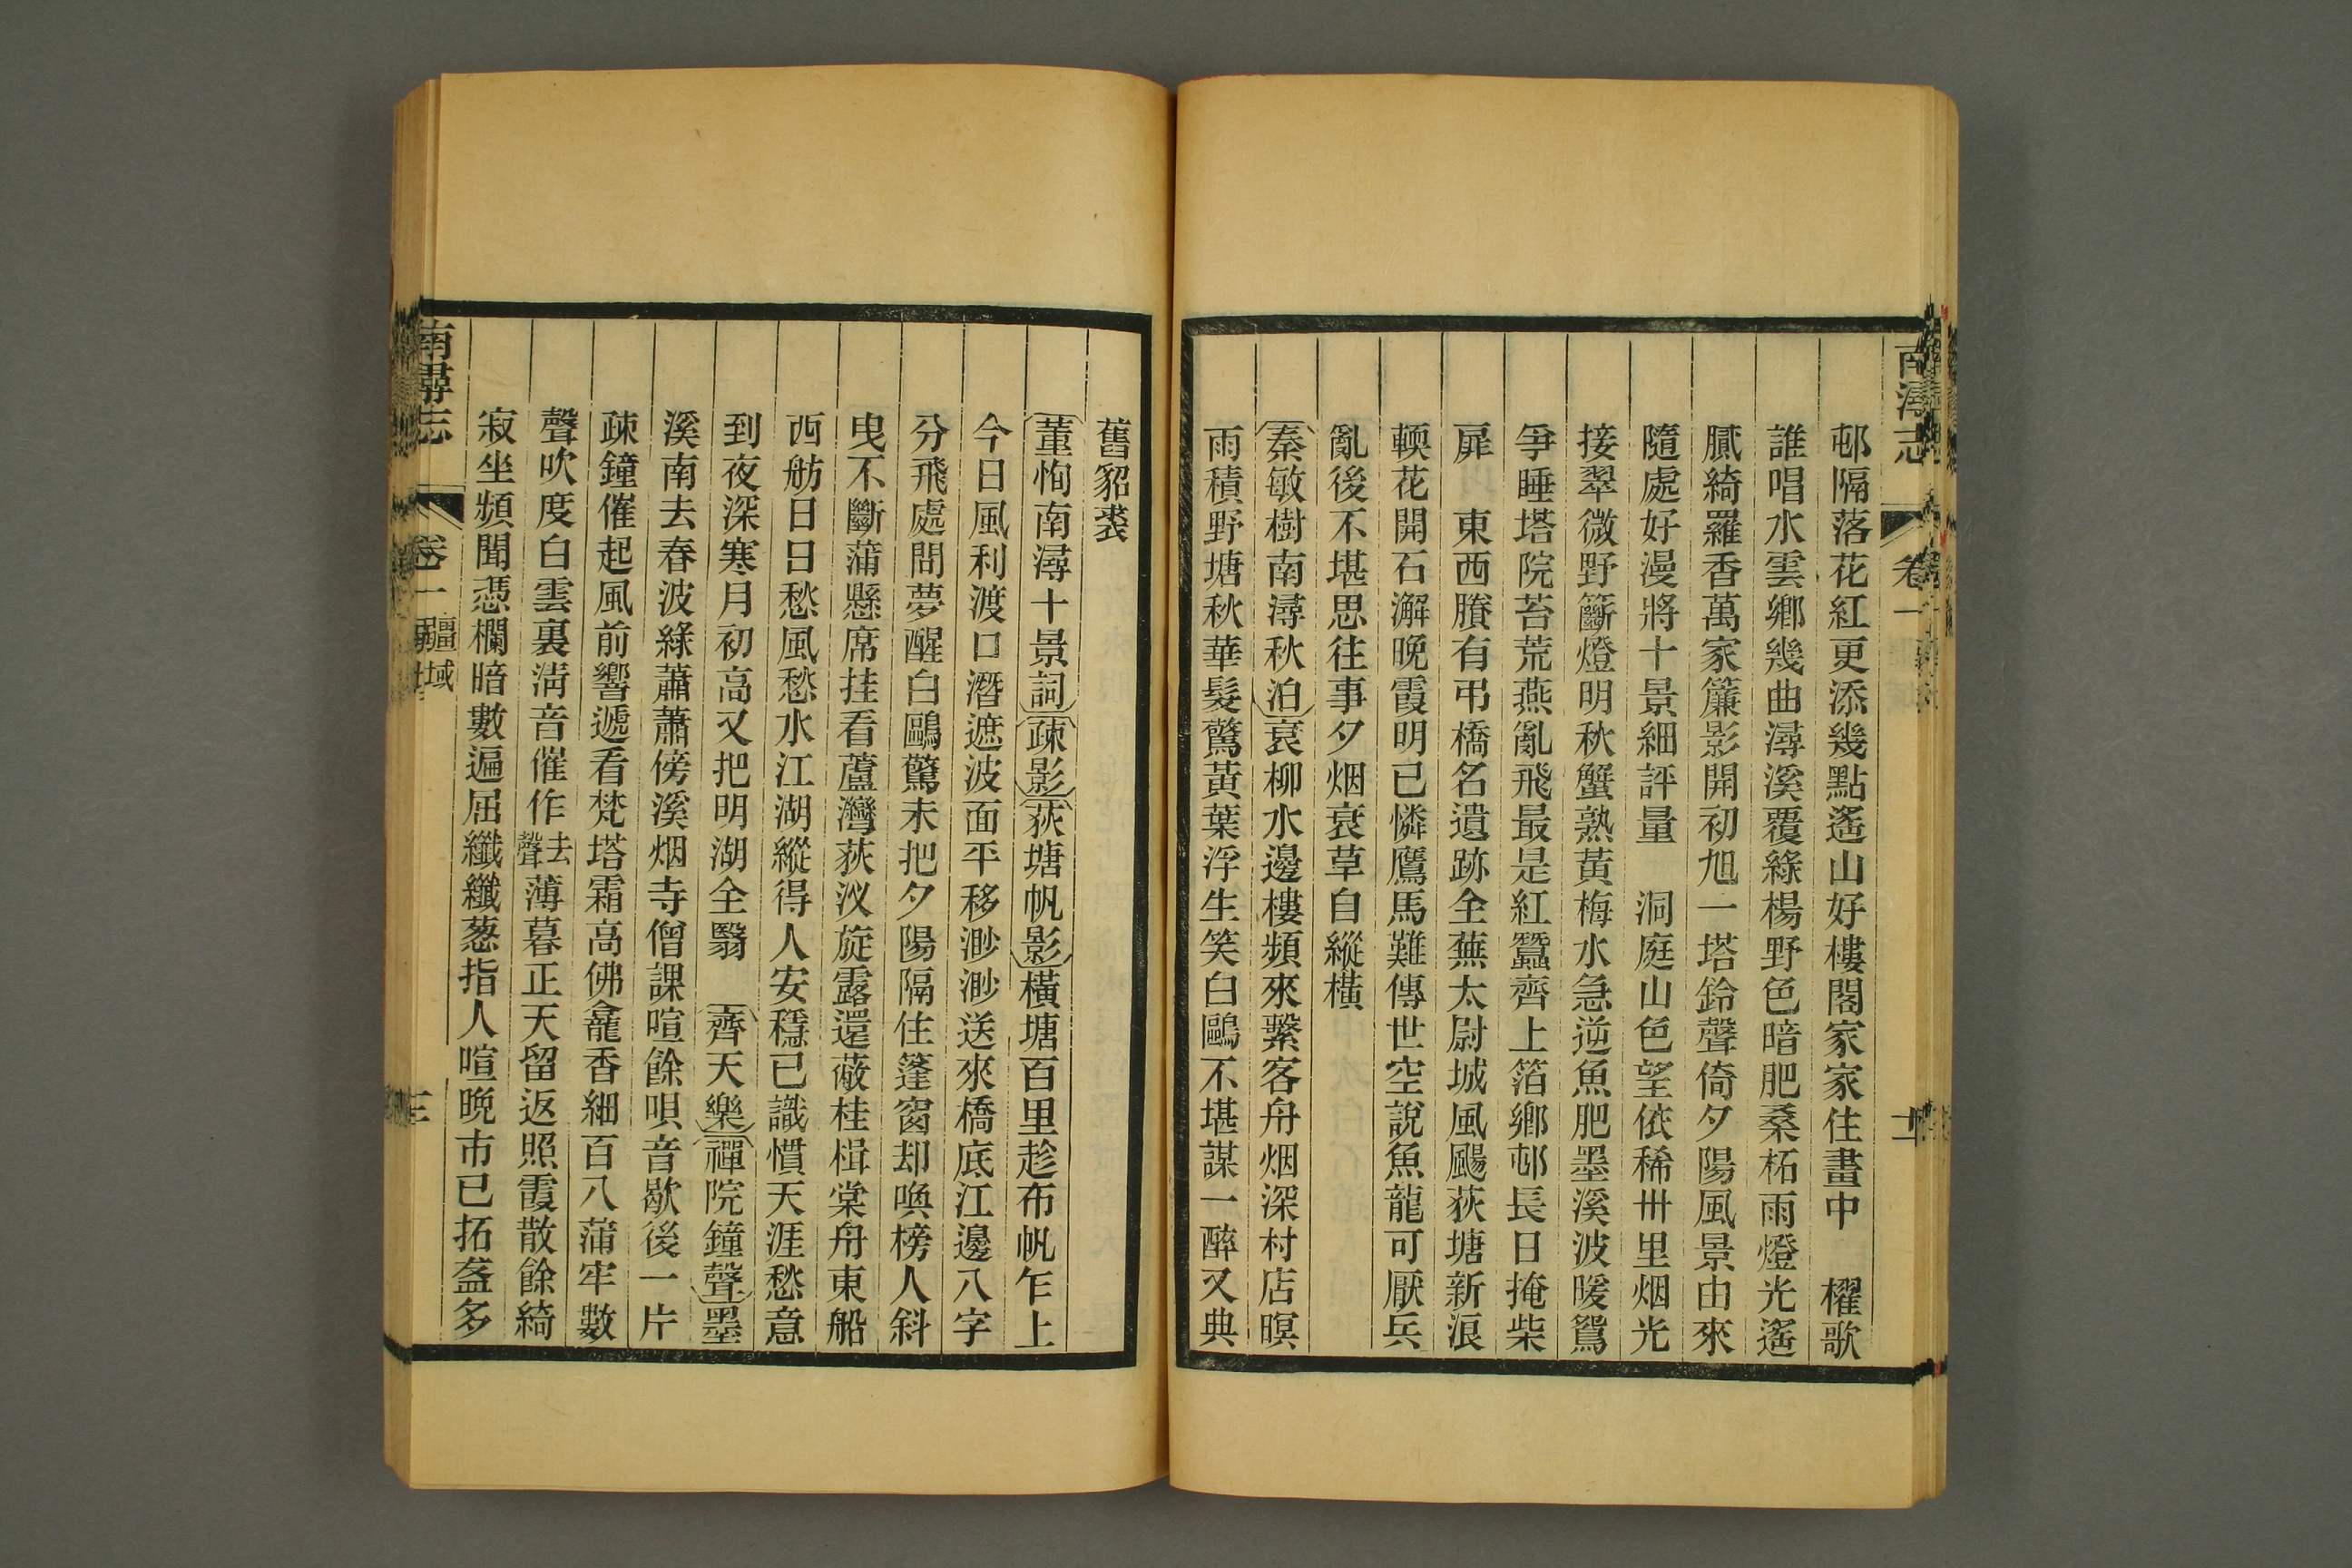 南潯志 卷一
邨隔落花紅更添幾點遙山好樓閣家家住畫中　櫂歌
誰唱水雲鄉幾曲潯溪覆綠楊野色暗肥桑柘雨燈光遙
膩綺羅香萬家簾影開初旭一塔鈴聲倚夕陽風景由來
隨處好漫將十景細評量　洞庭山色望依稀卅里烟光
接翠微野籪燈明秋蟹熟黃梅水急逆魚肥墨溪波暖鴛
爭睡塔院苔荒燕亂飛最是紅蠶齊上箔鄉邨長日掩柴
扉　東西賸有弔橋名遺跡全蕪太尉城風颺荻塘新浪
輭花開石澥晚霞明已憐鷹馬難傳世空說魚龍可厭兵
亂後不堪思往事夕烟衰草自縱橫
秦敏樹南潯秋泊衰柳水邊樓頻來繫客舟烟深村店暝
雨積野塘秋華髮驚黃葉浮生笑白鷗不堪謀一醉又典
舊貂裘
董恂南潯十景詞疎影荻塘帆影橫塘百里趁布帆乍上
今日風利渡口潛遮波面平移渺渺送來橋底江邊八字
分飛處問夢醒白鷗驚未把夕陽隔住篷窗却喚榜人斜
曳不斷蒲懸席挂看蘆灣荻汊旋露還蔽桂楫棠舟東船
西舫日日愁風愁水江湖縱得人安穩已識慣天涯愁意
到夜深寒月初高又把明湖全翳　齊天樂禪院鐘聲墨
溪南去春波綠蕭蕭傍溪烟寺僧課喧餘唄音歇後一片
疎鐘催起風前響遞看梵塔霜高佛龕香細百八蒲牢數
聲吹度白雲裏淸音催作去聲薄暮正天留返照霞散餘綺
寂坐頻聞憑欄暗數遍屈纖纖葱指人喧晚市已拓盋多
南潯志 卷一 疆域 三